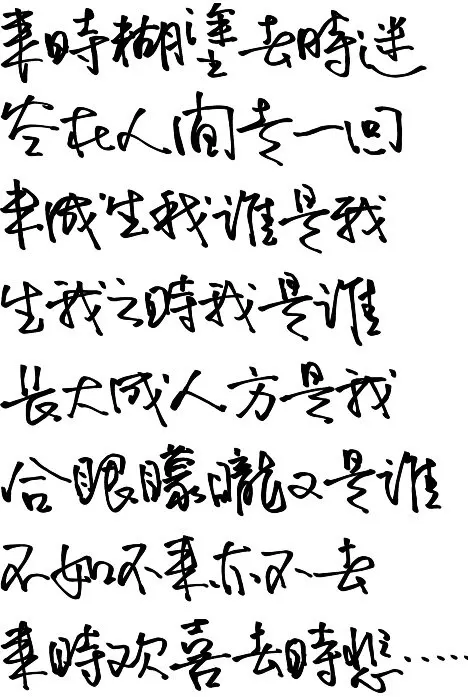 来時糊塗去時迷
空在人间走一回
未成生我谁是我
生我之時我是谁
長大成人方是我
合眼朦朧又是谁
不如不来亦不去
来時欢喜去時悲……